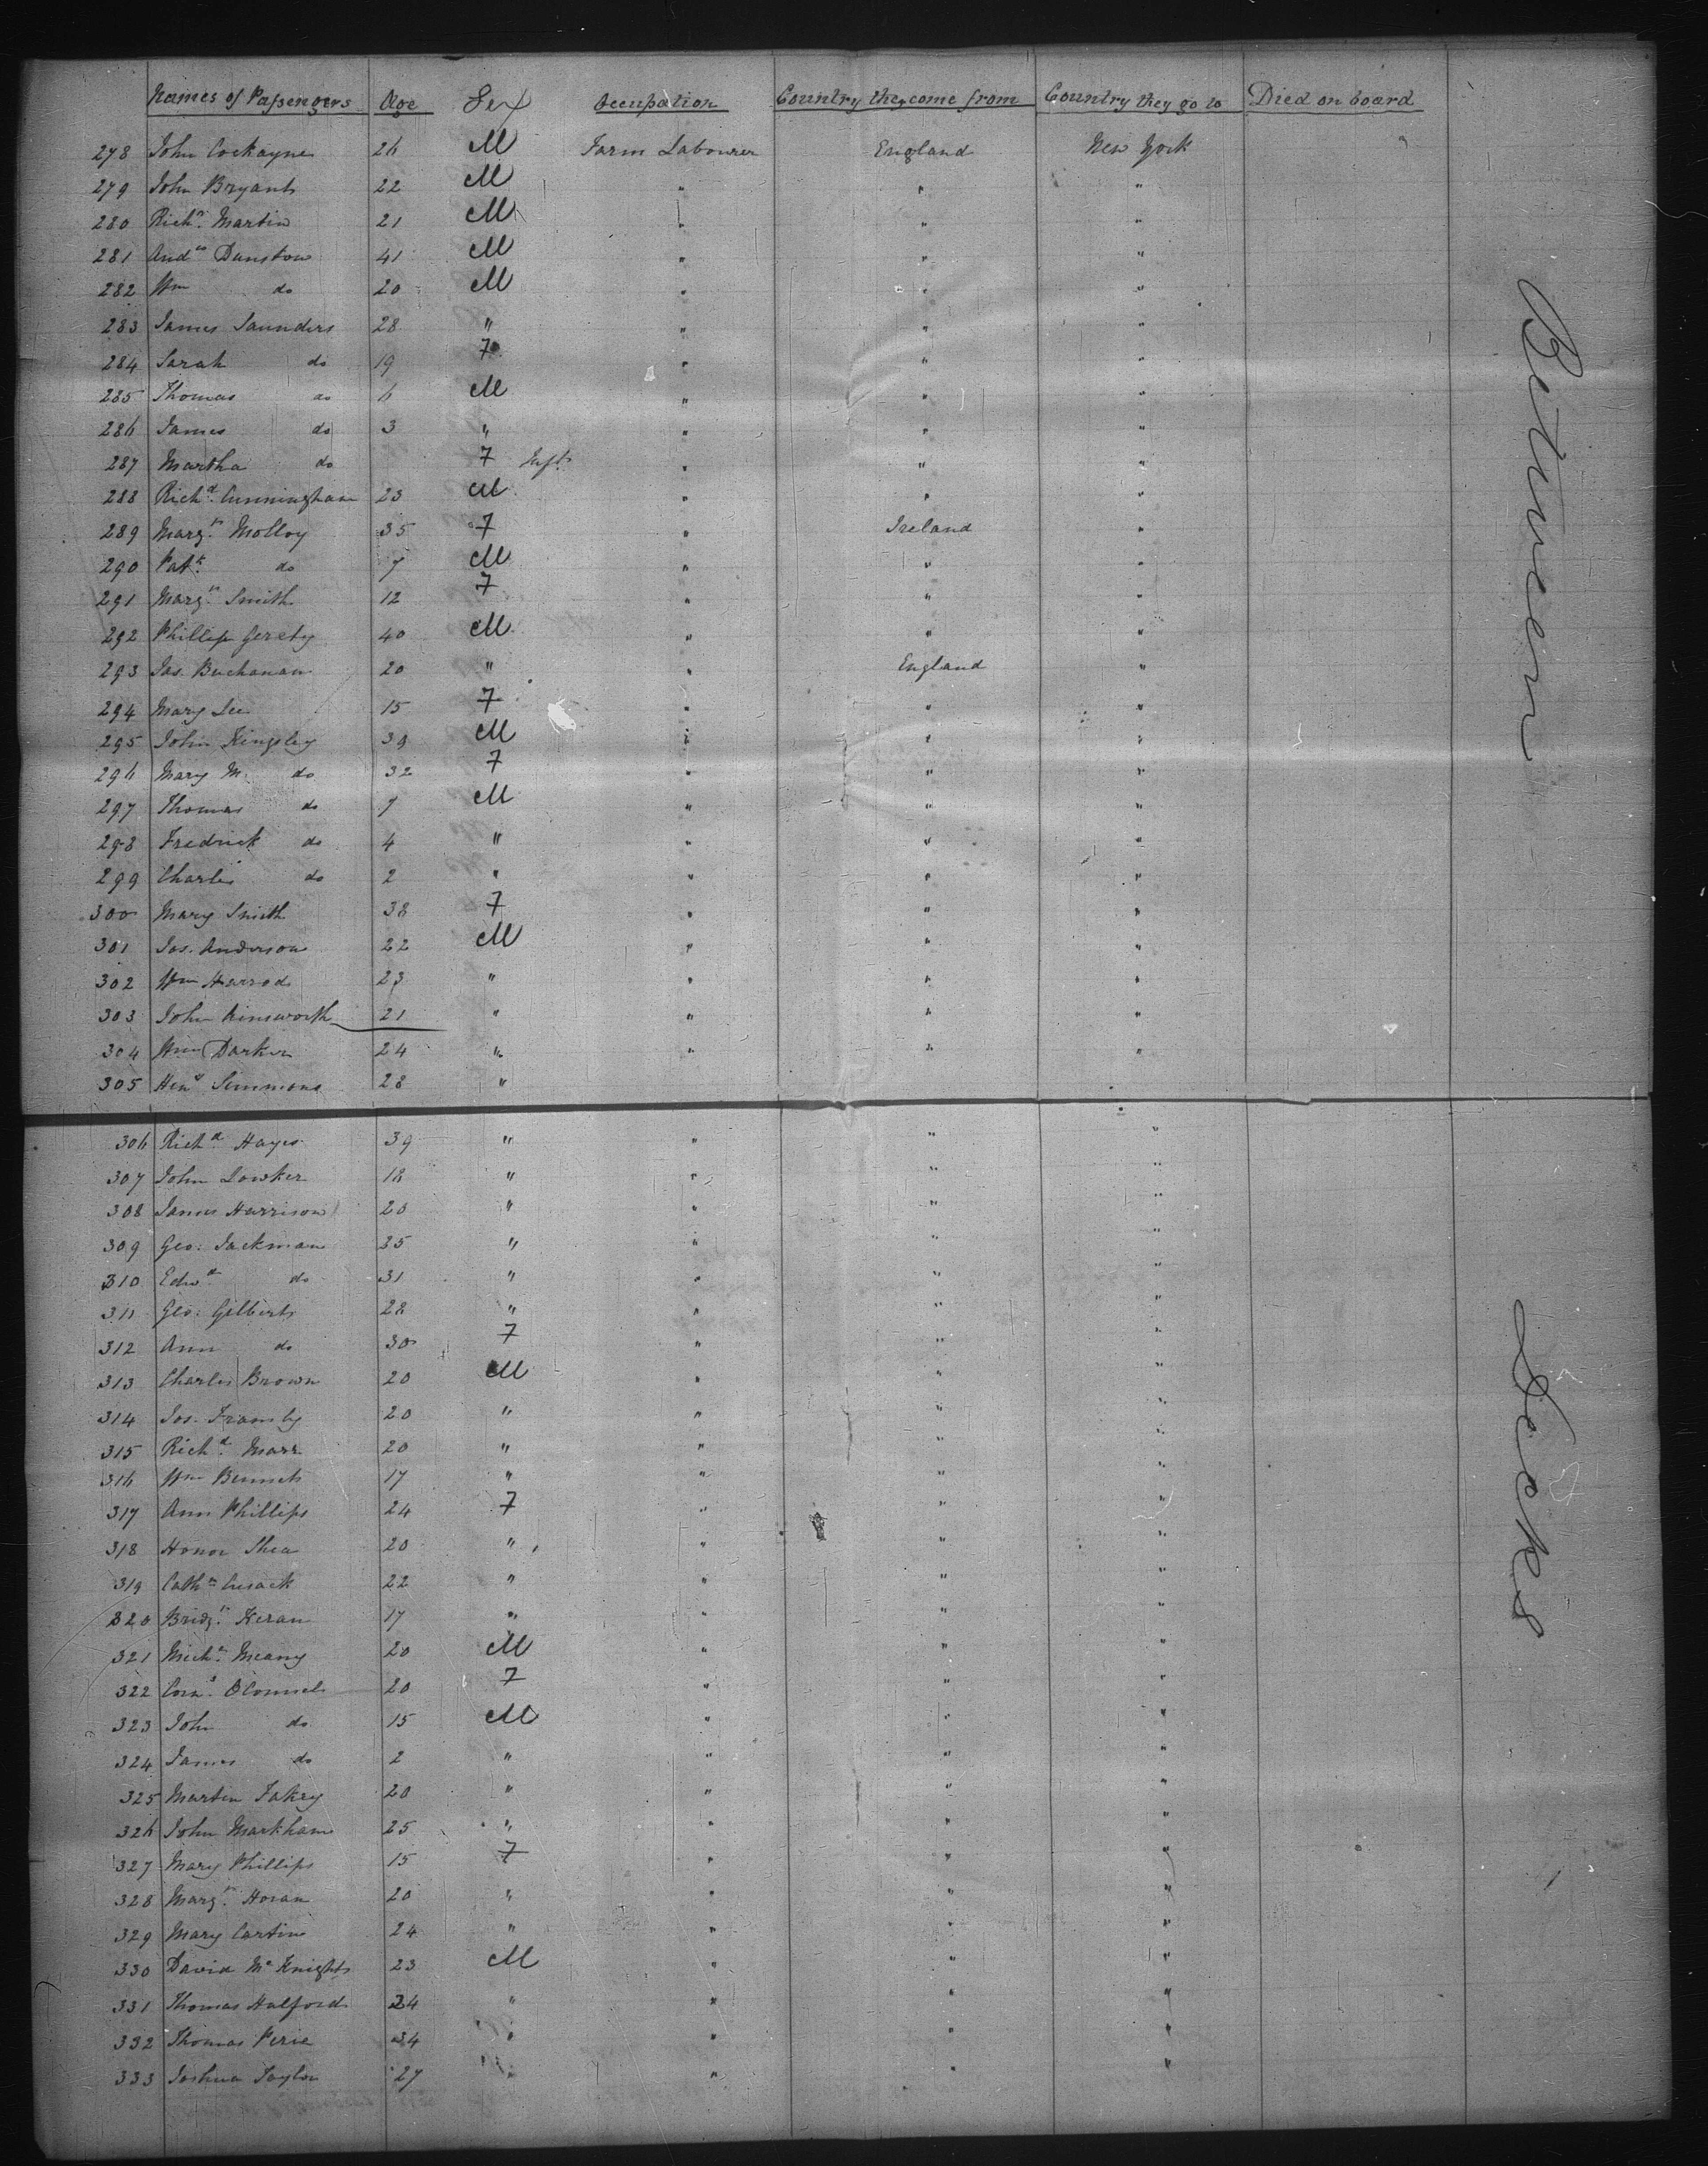 Names of Passengers Age Sex Occupation Country they come from Country they go to Died on board
278 John Cockayne 26 M Farm Labourer England New York
279 John Bryant 22 M " " "
280 Richd. Martin 21 M " " "
281 Andw Dunstow 41 M " " "
282 Wm do 20 M " " "
283 James Saunders 28 " " " "
284 Sarah do 19 F " " "
285 Thomas do 6 M " " "
286 James do 3 " " " "
287 Martha do F Inft " " "
288 Richd. Cunningham 23 M " " "
289 Margt. Molloy 35 F " Ireland "
290 Patk. do 7 M " " "
291 Margt. Smith 12 F " " "
292 Phillip Gerety 40 M " " "
293 Jas. Buchanan 20 " " England "
294 Mary Lee 15 F " " "
295 John Kingsley 39 M " " "
296 Mary M. do 32 F " " "
297 Thomas do 7 M " " "
298 Fredrick do 4 " " " "
299 Charles do 2 " " " "
300 Mary Smith 38 F " " "
301 Jas. Anderson 22 M " " "
302 Wm Harrod 23 " " " "
303 John Ainsworth 21 " " " "
304 Wm Darker 24 " " " "
305 Heny Simmons 28 "
306 Richd Hayes 39 " " " "
307 John Lowker 18 " " " "
308 James Harrison 20 " " " "
309 Geo: Jackman 35 " " " "
310 Edwd do 31 " " " "
311 Geo: Gilbert 28 " " " "
312 Ann do 30 F " " "
313 Charles Brown 20 M " " "
314 Jos. Framby 20 " " " "
315 Richd. Marr 20 " " " "
316 Wm Bennet 17 " " " "
317 Ann Phillips 24 F " " "
318 Honor Shea 20 " " " "
319 Cathn Cusack 22 " " " "
320 Bridgt. Keran 17 " " " "
321 Michl. Meany 20 M " " "
322 Corns. O'Connel 20 F " " "
323 John do 15 M " " "
324 James do 2 " " " "
325 Martin Fahey 20 " " " "
326 John Markham 25 " " " "
327 Mary Phillips 15 F " " "
328 Margt. Horan 20 " " " "
329 Mary Cartin 24 " " " "
330 David Mc Knight 23 M " " "
331 Thomas Halford 24 " " " "
332 Thomas Perie 34 " " " "
333 Joshua Taylor 27 " " " "
Between
Decks